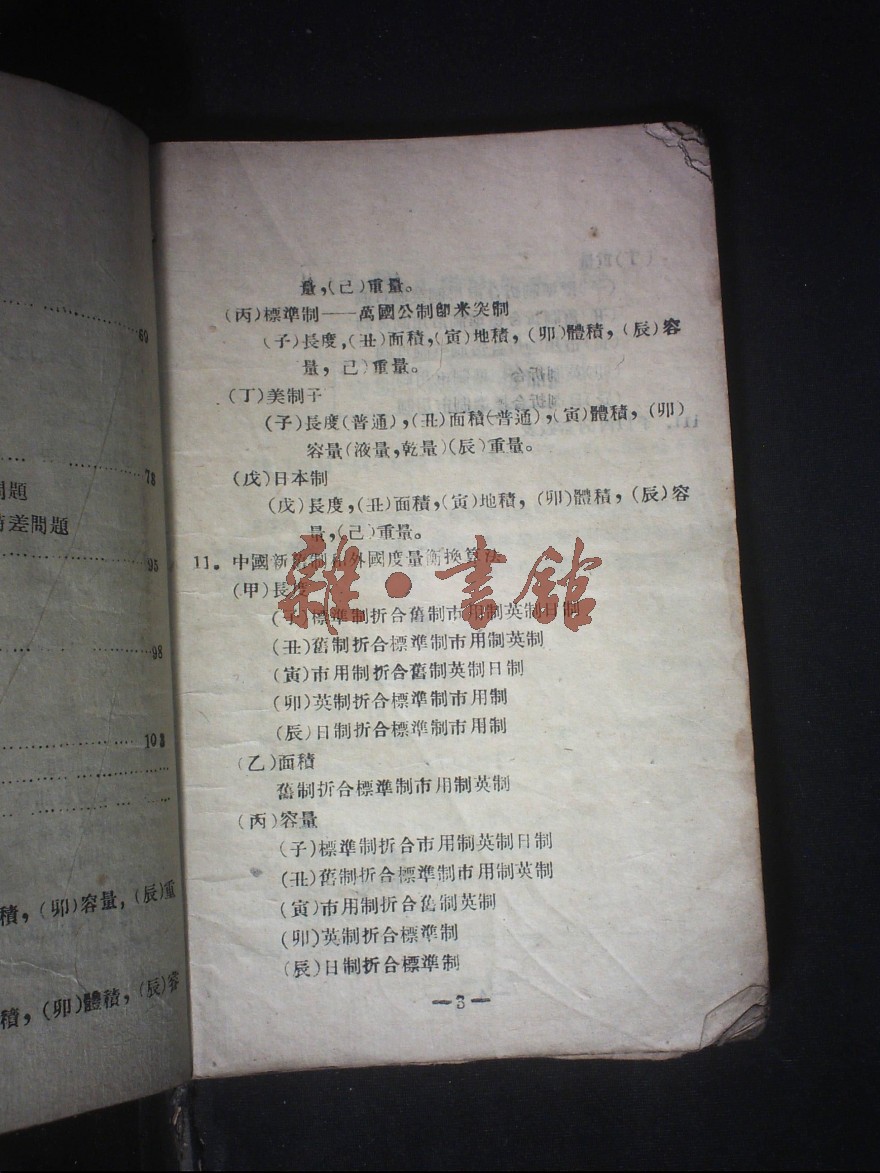 60
78
問題
差問題
95
98
103
積，(卯)容量，(辰)重
積，(卯)體積，(辰)容
量，(己)重量。
(丙)標準制——萬國公制即米突制
(子)長度，(丑)面積，(寅)地積，(卯)體積，(辰)容
量，己)重量。
(丁)美制子
(子)長度(普通)，(丑)面積(普通)，(寅)體積，(卯)
容量(液量，乾量)(辰)重量。
(戊)日本制
(戊)長度，(丑)面積，(寅)地積，(卯)體積，(辰)容
量，(己)重量。
11。中國新舊制和外國度量衡換算法
(甲)長度
(子)標準制折合舊制市用制英制日制
(丑)舊制折合標準制市用制英制
(寅)市用制折合舊制英制日制
(卯)英制折合標準制市用制
(辰)日制折合標準制市用制
(乙)面積
舊制折合標準制市用制英制
(丙)容量
(子)標準制折合市用制英制日制
(丑)舊制折合標準制市用制英制
(寅)市用制折合舊制英制
(卯)英制折合標準制
(辰)日制折合標準制
—3—
雜·書館